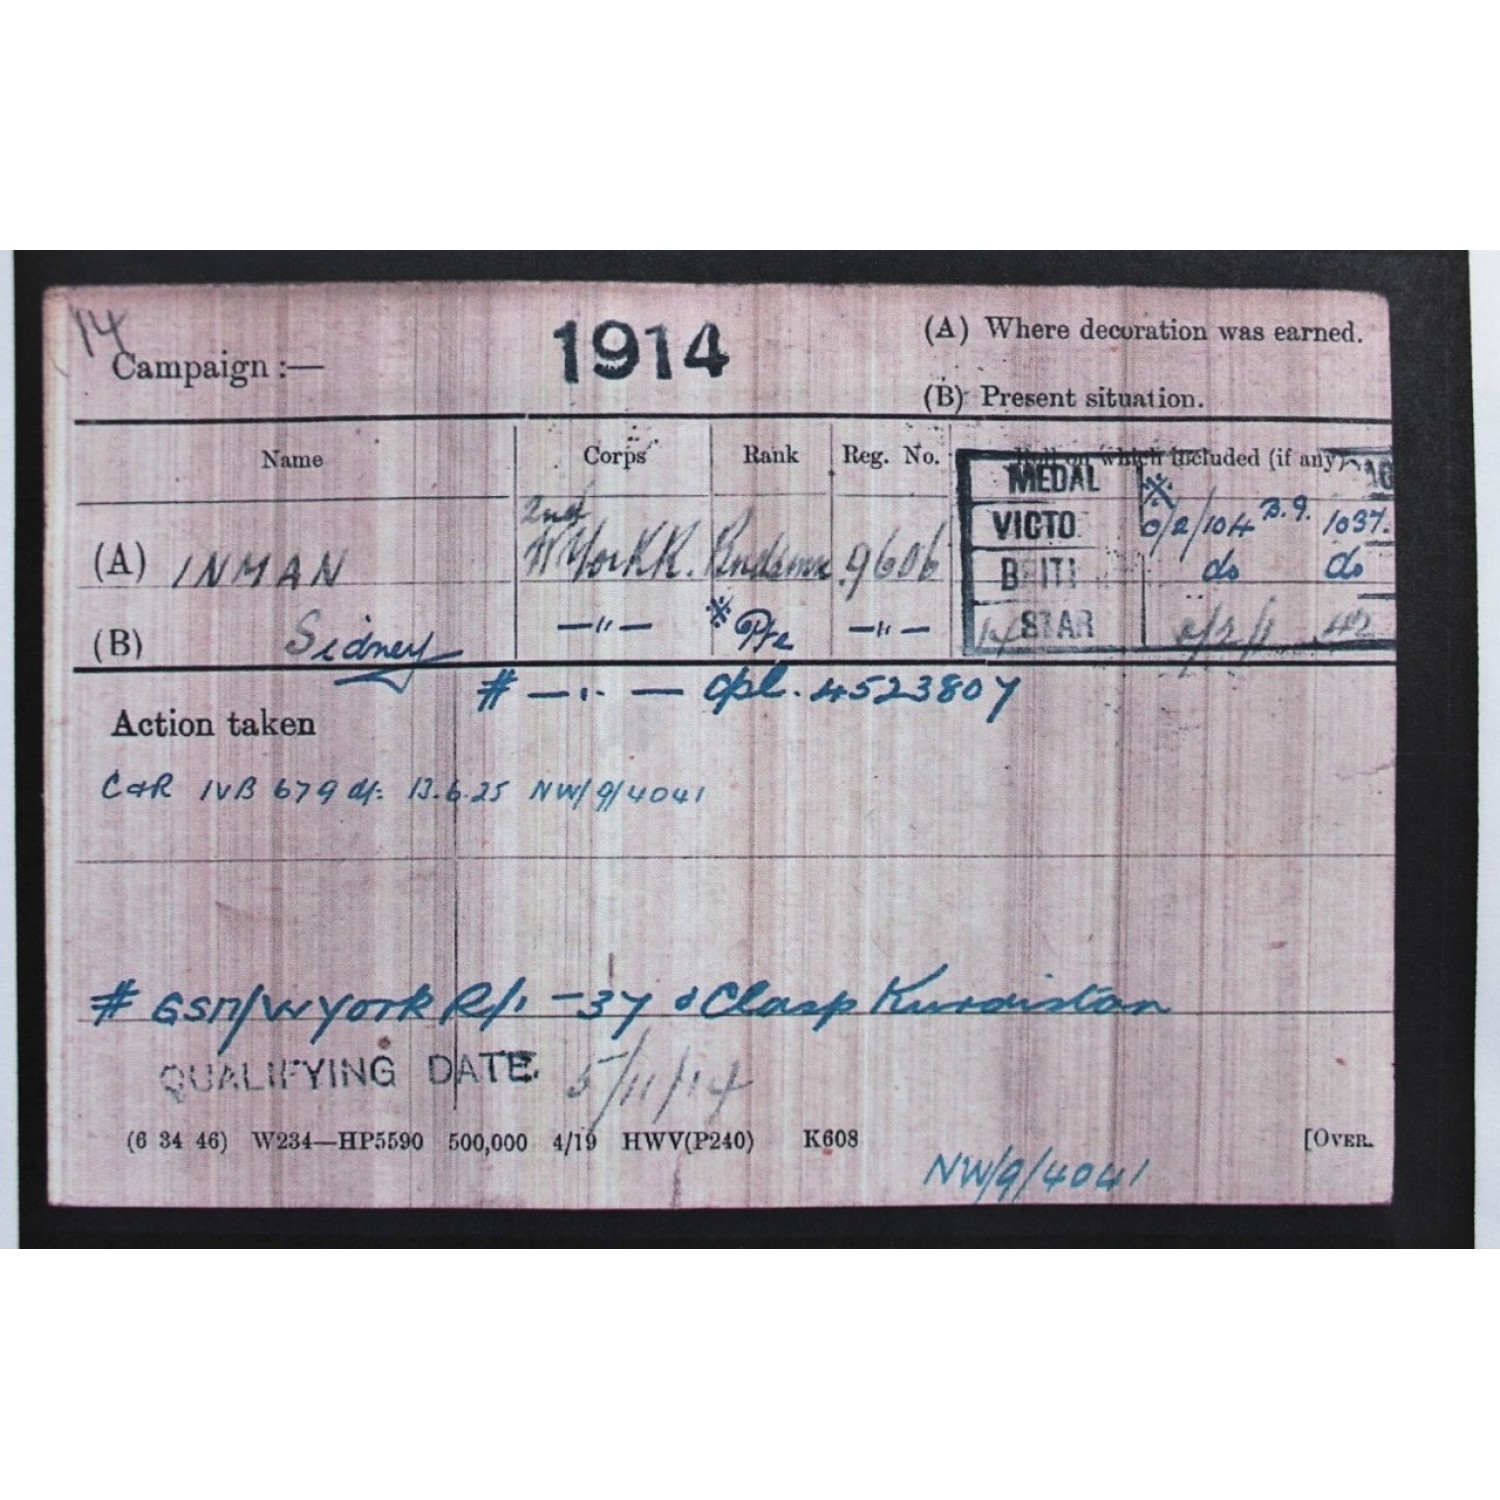 14
Campaign :— 1914 (A) Where decoration was earned.
(B) Present situation.
Name Corps Rank Reg. No. Roll on which included (if any)
MEDAL
2nd
(A) INMAN W York R. Bndsmn 9606 VICTO ※ O/2/104 B.9. 1037.
BRITI do do
(B) Sidney —"— ※ Pte —"— 14 STAR 42
# —"— Cpl. 4523807
Action taken
C&R IVB 679 d/: 13.6.25 NW/9/4041
# GSM/W York R/1 -37 & Clasp Kurdistan
QUALIFYING DATE. 5/11/14
(6 34 46) W234—HP5590 500,000 4/19 HWV(P240) K608 [OVER.
NW/9/4041